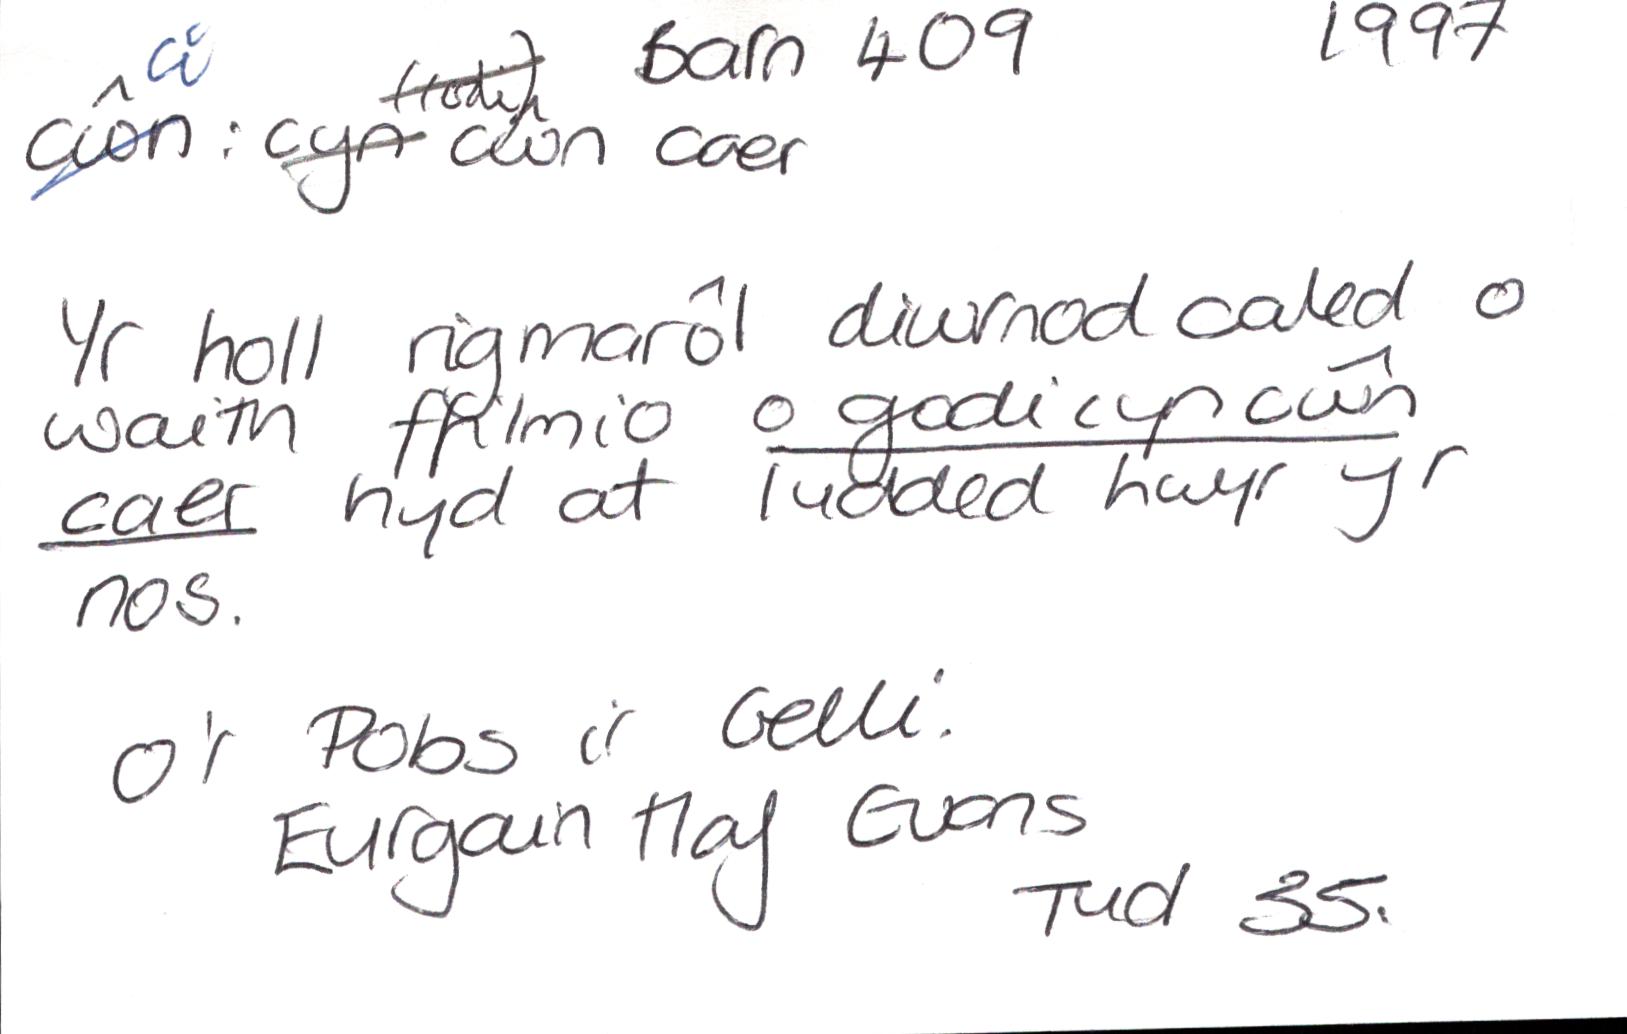 ci Barn 409 1997
cŵn : cyn cŵn caer
Yr holl rigmarôl diwrnod caled o
waith ffilmio o godi cyn cŵn
caer hyd at ludded hwyr yr
nos.
O'r Pobs i'r Gelli.
Eurgain Haf Evans
Tud 35.